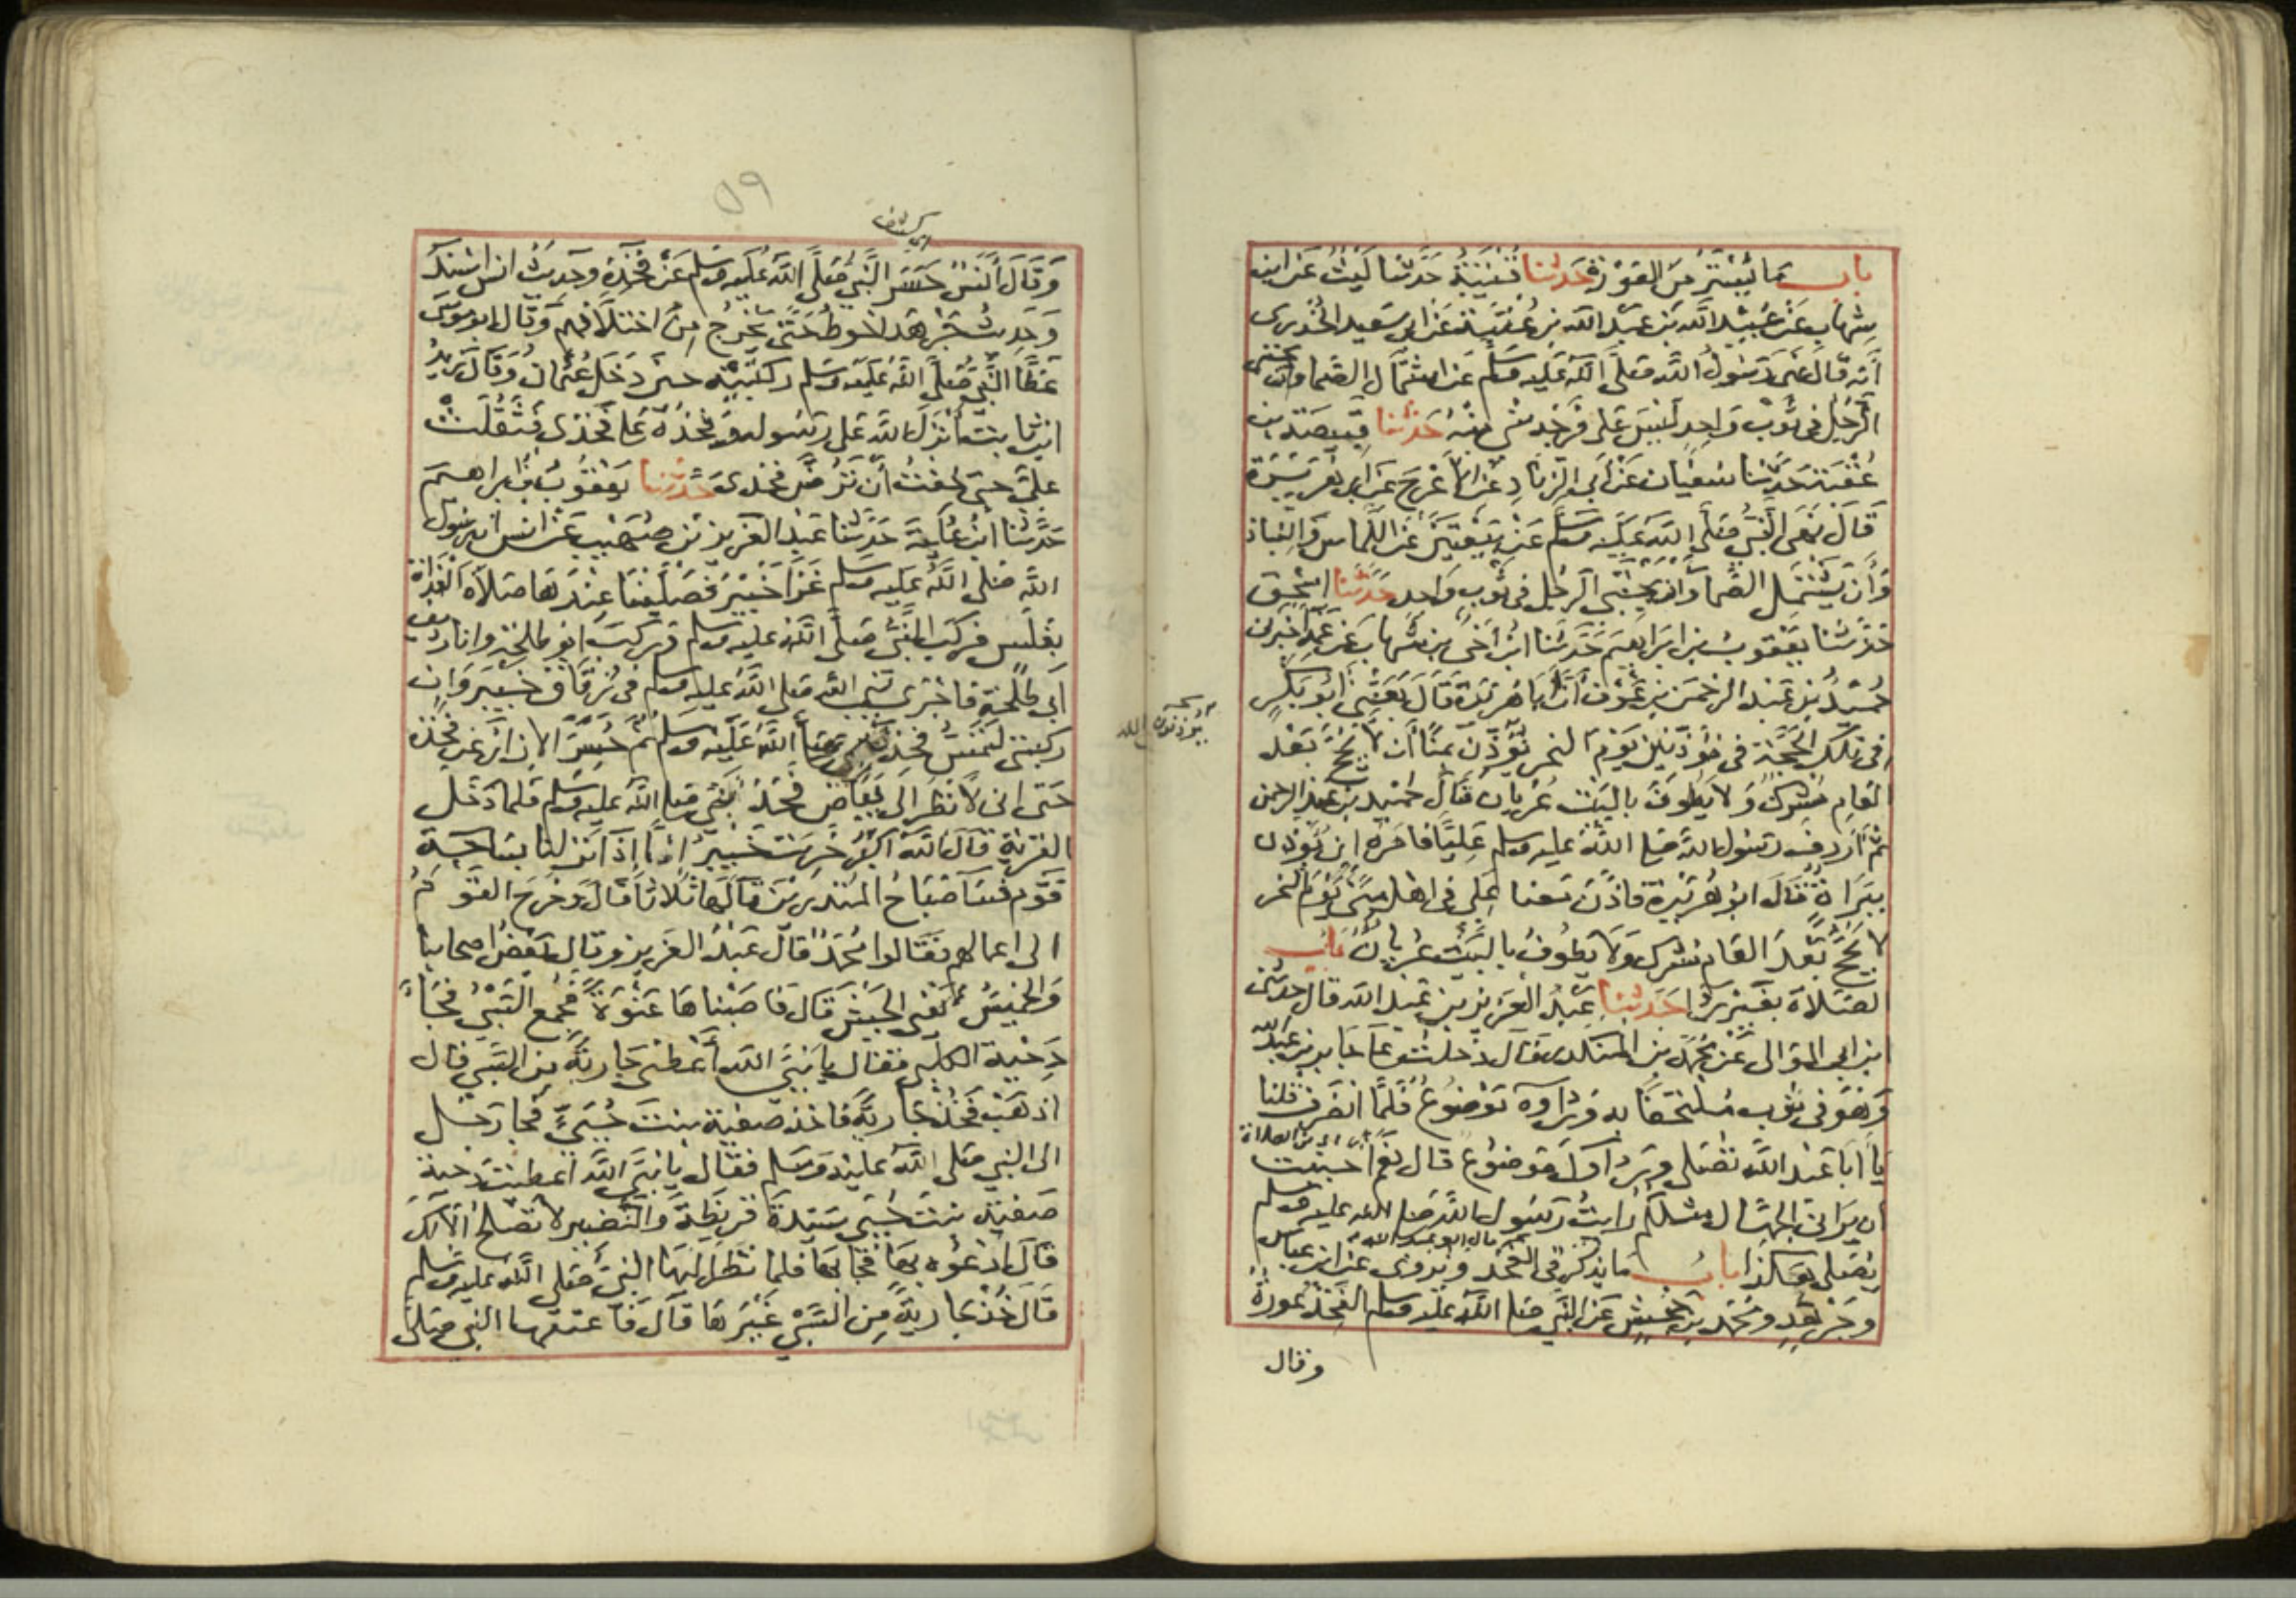 باب ما يستر من العورة حدثنا قتيبة حدثنا ليث عن ابن
شهاب عن عبيد الله بن عبد الله بن عتبة عن ابي سعيد الخدري
أنه قال نهى رسول الله صلى الله عليه وسلم عن اشتمال الصما وان يحتبي
الرجل في ثوب واحد ليس على فرجه شي منه حدثنا قبيصة بن
عقبة حدثنا سفيان عن أبي الزناد عن الاعرج عن ابي هريرة
قال نهى النبي صلى الله عليه وسلم عن بيعتين عن اللماس والنباذ
وأن يشتمل الصما وان يحتبي الرجل في ثوب واحد حدثنا اسحق
حدثنا يعقوب بن ابراهيم حدثنا ابن أخي بن شهاب عن عمه اخبرني
حميد بن عبد الرحمن بن عوف أن أبا هريرة قال بعثني أبو بكر
في تلك الحجة في مؤذنين يوم النحر نؤذن بمنا أن لا يحج بعد
العام مشرك ولا يطوف بالبيت عريان قال حميد بن عبد الرحمن
ثم أردف رسول الله صلى الله عليه وسلم عليا فامره ان يؤذن
ببراة قال ابو هريرة فاذن معنا علي في اهل منى يوم النحر
لا يحج بعد العام مشرك ولا يطوف بالبيت عريان باب
الصلاة بغير ردا حدثنا عبد العزيز بن عبد الله قال حدثني
ابن ابي الموالي عن محمد بن المنكدر قال دخلت على جابر بن عبد الله
وهو في ثوب ملتحفا به ورداوه موضوع فلما انصرف قلنا
يا أبا عبد الله تصلي ورداوك موضوع قال نعم احببت
ان يراني الجهال مثلكم رايت رسول الله صلى الله عليه وسلم
يصلي هكذا باب ما يذكر في الفخذ ويروى عن ابن عباس
قال ابو عبد الله
وجرهد ومحمد بن جحش عن النبي صلى الله عليه وسلم الفخذ عورة
وقال
٥٩
وقال أنس حسر النبي صلى الله عليه وسلم عن فخذه وحديث انس اسند
وحديث جرهد احوط حتى يخرج من اختلافهم وقال ابو موسى
غطا النبي صلى الله عليه وسلم ركبتيه حين دخل عثمان وقال زيد
ابن ثابت أنزل الله على رسوله وفخذه على فخذي فثقلت
علي حتى خفت أن ترض فخذي حدثنا يعقوب بن ابراهيم
حدثنا ابن علية حدثنا عبد العزيز بن صهيب عن انس ان رسول
الله صلى الله عليه وسلم غزا خيبر فصلينا عندها صلاة الغداة
بغلس فركب النبي صلى الله عليه وسلم وركب ابو طلحة وانا رديف
أبي طلحة فاجرى نبي الله صلى الله عليه وسلم في زقاق خيبر وان
ركبتي لتمس فخذ نبي الله صلى الله عليه وسلم ثم حسر الازار عن فخذه
حتى اني لا نظر الى بياض فخذ النبي صلى الله عليه وسلم فلما دخل
القرية قال الله اكبر خربت خيبر إنا إذا نزلنا بساحة
قوم فسا صباح المنذرين قالها ثلاثا قال وخرج القوم
الى اعمالهم فقالوا محمد قال عبد العزيز وقال بعض اصحابنا
والخميس يعني الجيش قال فاصبناها عنوة فجمع السبي فجا
دحية الكلبي فقال يا نبي الله أعطني جارية من السبي قال
اذهب فخذ جارية فاخذ صفية بنت حيي فجا رجل
الى النبي صلى الله عليه وسلم فقال يا نبي الله اعطيت دحية
صفية بنت حيي سيدة قريظة والنضير لا تصلح الا لك
قال ادعوه بها فجا بها فلما نظر اليها النبي صلى الله عليه وسلم
قال خذ جارية من السبي غيرها قال فاعتقها النبي صلى